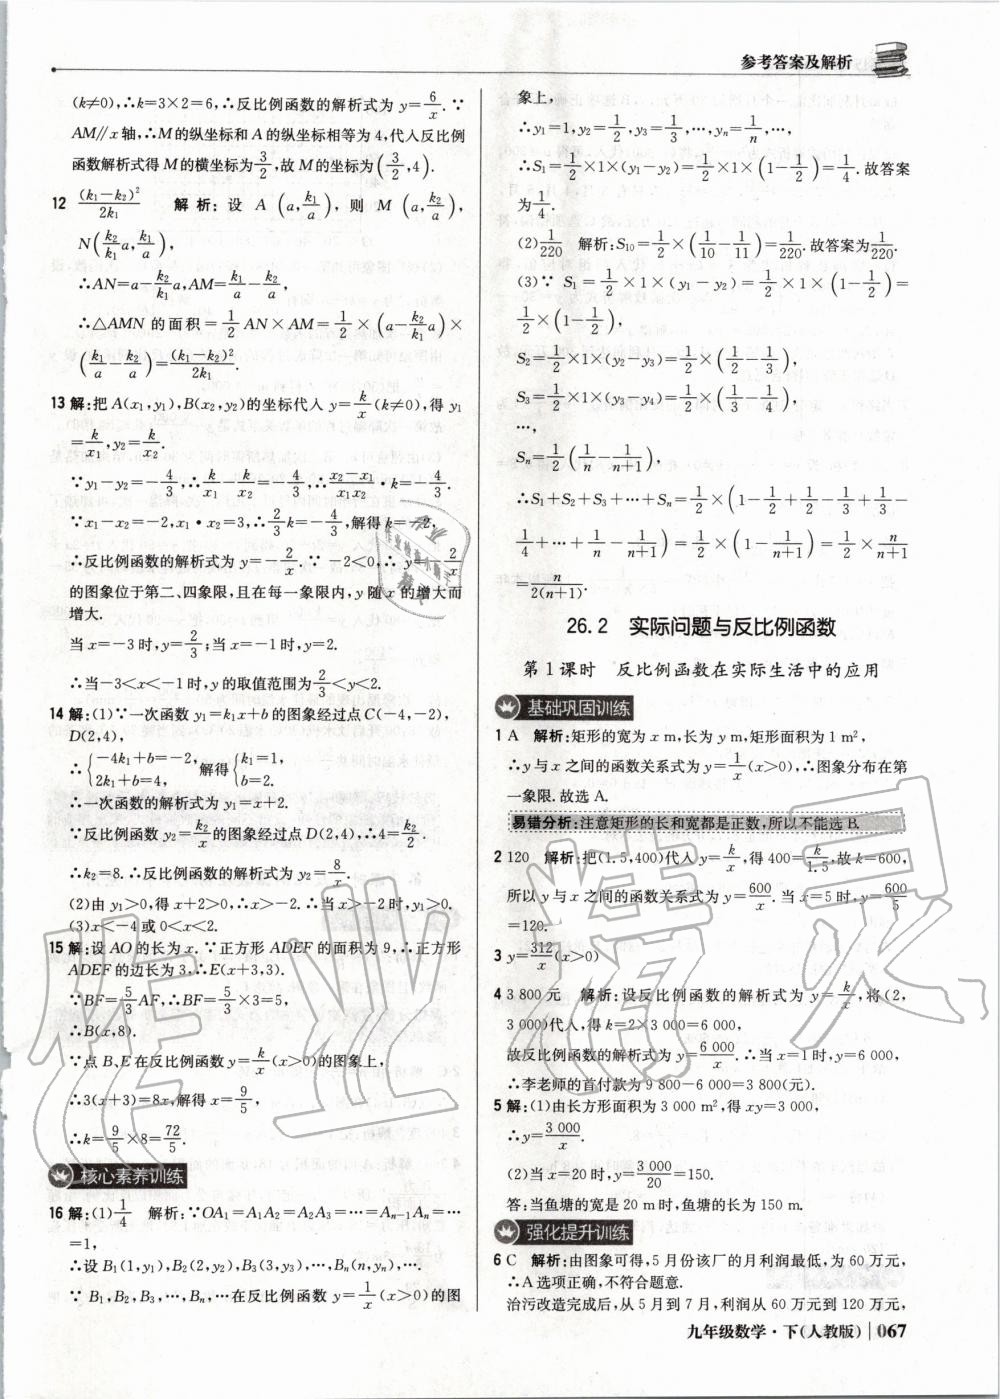 参考答案及解析
(k≠0),∴k=3×2=6,∴反比例函数的解析式为 y=6/x.∵
AM∥x 轴,∴M的纵坐标和A的纵坐标相等为4,代入反比例
函数解析式得M的横坐标为3/2,故M的坐标为(3/2,4).
12 (k₁-k₂)²/2k₁ 解析:设 A(a,k₁/a),则 M(a,k₂/a),
N(k₂/k₁a,k₁/a),
∴AN=a-k₂/k₁a,AM=k₁/a-k₂/a,
∴△AMN 的面积=1/2AN×AM=1/2×(a-k₂/k₁a)×
(k₁/a-k₂/a)=(k₁-k₂)²/2k₁.
13 解:把A(x₁,y₁),B(x₂,y₂)的坐标代入 y=k/x(k≠0),得 y₁
=k/x₁,y₂=k/x₂.
∵y₁-y₂=-4/3,∴k/x₁-k/x₂=-4/3,∴x₂-x₁/x₁x₂·k=-4/3
∵x₁-x₂=-2,x₁·x₂=3,∴2/3k=-4/3,解得k=-2,
∴反比例函数的解析式为 y=-2/x.∵-2<0,∴y=-2/x
的图象位于第二、四象限,且在每一象限内,y随x的增大而
增大.
当x=-3时,y=2/3;当x=-1时,y=2.
∴当-3<x<-1时,y的取值范围为2/3<y<2.
14 解:(1)∵一次函数 y₁=k₁x+b的图象经过点C(-4,-2),
D(2,4),
∴{-4k₁+b=-2, 2k₁+b=4, 解得{k₁=1, b=2.
∴一次函数的解析式为y₁=x+2.
∵反比例函数y₂=k₂/x的图象经过点D(2,4),∴4=k₂/2.
∴k₂=8.∴反比例函数的解析式为 y₂=8/x.
(2)由y₁>0,得x+2>0,∴x>-2.∴当x>-2时,y₁>0.
(3)x<-4或0<x<2.
15 解:设AO的长为x.∵正方形ADEF的面积为9,∴正方形
ADEF的边长为3,∴E(x+3,3).
∵BF=5/3AF,∴BF=5/3×3=5,
∴B(x,8).
∵点B,E在反比例函数y=k/x(x>0)的图象上,
∴3(x+3)=8x,解得x=9/5,
∴k=9/5×8=72/5.
核心素养训练
16 解:(1)1/4 解析:∵OA₁=A₁A₂=A₂A₃=…=Aₙ₋₁Aₙ
=1,
∴设B₁(1,y₁),B₂(2,y₂),B₃(3,y₃),…,Bₙ(n,yₙ),
∵B₁,B₂,B₃,…,Bₙ,…在反比例函数 y=1/x(x>0)的图
象上,
∴y₁=1,y₂=1/2,y₃=1/3,…,yₙ=1/n,…,
∴S₁=1/2×1×(y₁-y₂)=1/2×1×(1-1/2)=1/4.故答案
为1/4.
(2)1/220 解析:S₁₀=1/2×(1/10-1/11)=1/220.故答案为1/220.
(3)∵S₁=1/2×1×(y₁-y₂)=1/2×1×(1-1/2)=
1/2×(1-1/2),
S₂=1/2×1×(y₂-y₃)=1/2×(1/2-1/3),
S₃=1/2×1×(y₃-y₄)=1/2×(1/3-1/4),
…,
Sₙ=1/2(1/n-1/n+1),
∴S₁+S₂+S₃+…+Sₙ=1/2×(1-1/2+1/2-1/3+1/3-
1/4+…+1/n-1/n+1)=1/2×(1-1/n+1)=1/2×n/n+1
=n/2(n+1).
26.2 实际问题与反比例函数
第1课时 反比例函数在实际生活中的应用
基础巩固训练
1 A 解析:矩形的宽为x m,长为y m,矩形面积为1 m²,
∴y与x之间的函数关系式为y=1/x(x>0),∴图象分布在第
一象限.故选A.
易错分析:注意矩形的长和宽都是正数,所以不能选B.
2 120 解析:把(1.5,400)代入y=k/x,得400=k/1.5,故k=600,
所以y与x之间的函数关系式为y=600/x.当x=5时,y=600/5
=120.
3 y=312/x(x>0)
4 3 800元 解析:设反比例函数的解析式为 y=k/x,将(2,
3 000)代入,得k=2×3 000=6 000,
故反比例函数的解析式为y=6 000/x.∴当x=1时,y=6 000.
∴李老师的首付款为9 800-6 000=3 800(元).
5 解:(1)由长方形面积为3 000 m²,得xy=3 000,
∴y=3 000/x.
(2)当x=20时,y=3 000/20=150.
答:当鱼塘的宽是20 m时,鱼塘的长为150 m.
强化提升训练
6 C 解析:由图象可得,5月份该厂的月利润最低,为60万元,
∴A选项正确,不符合题意.
治污改造完成后,从5月到7月,利润从60万元到120万元,
九年级数学·下(人教版) 067
作业精灵